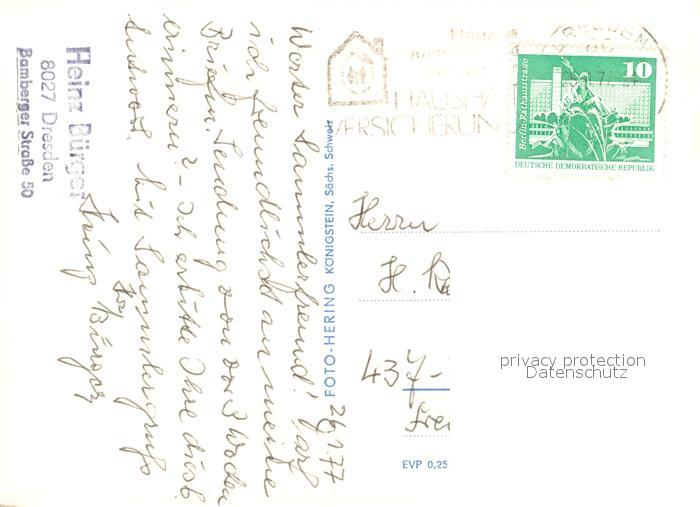 Werter Sammlerfreund! Darf
ich freundlichst an meine
Briefm. Sendung von vor 3 Wochen
erinnern? - Ich erbitte Ihre diesb.
Antwort. Mit Sammlergruß
Ihr
Heinz Bürger
Heinz Bürger
8027 Dresden
Bamberger Straße 50
26.1.77
FOTO-HERING KÖNIGSTEIN, Sächs. Schweiz
HAUSHA
VERSICHERUN
10
Berlin · Rathausstraße
DEUTSCHE DEMOKRATISCHE REPUBLIK
Herrn
H.
437
EVP 0,25
privacy protection
Datenschutz